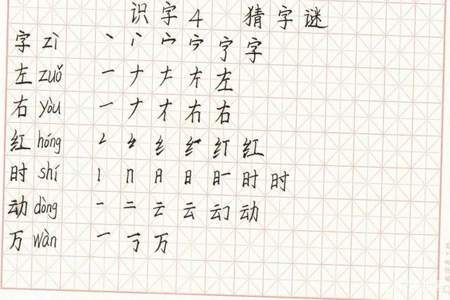 识字4 猜字谜
字 zì 丶 丷 宀 宁 字
左 zuǒ 一 ナ 左
右 yòu 一 ナ 右 右
红 hóng 纟 红 红
时 shí 丨 冂 日 日 时 时
动 dòng 一 二 云 云 动 动
万 wàn 一 丁 万